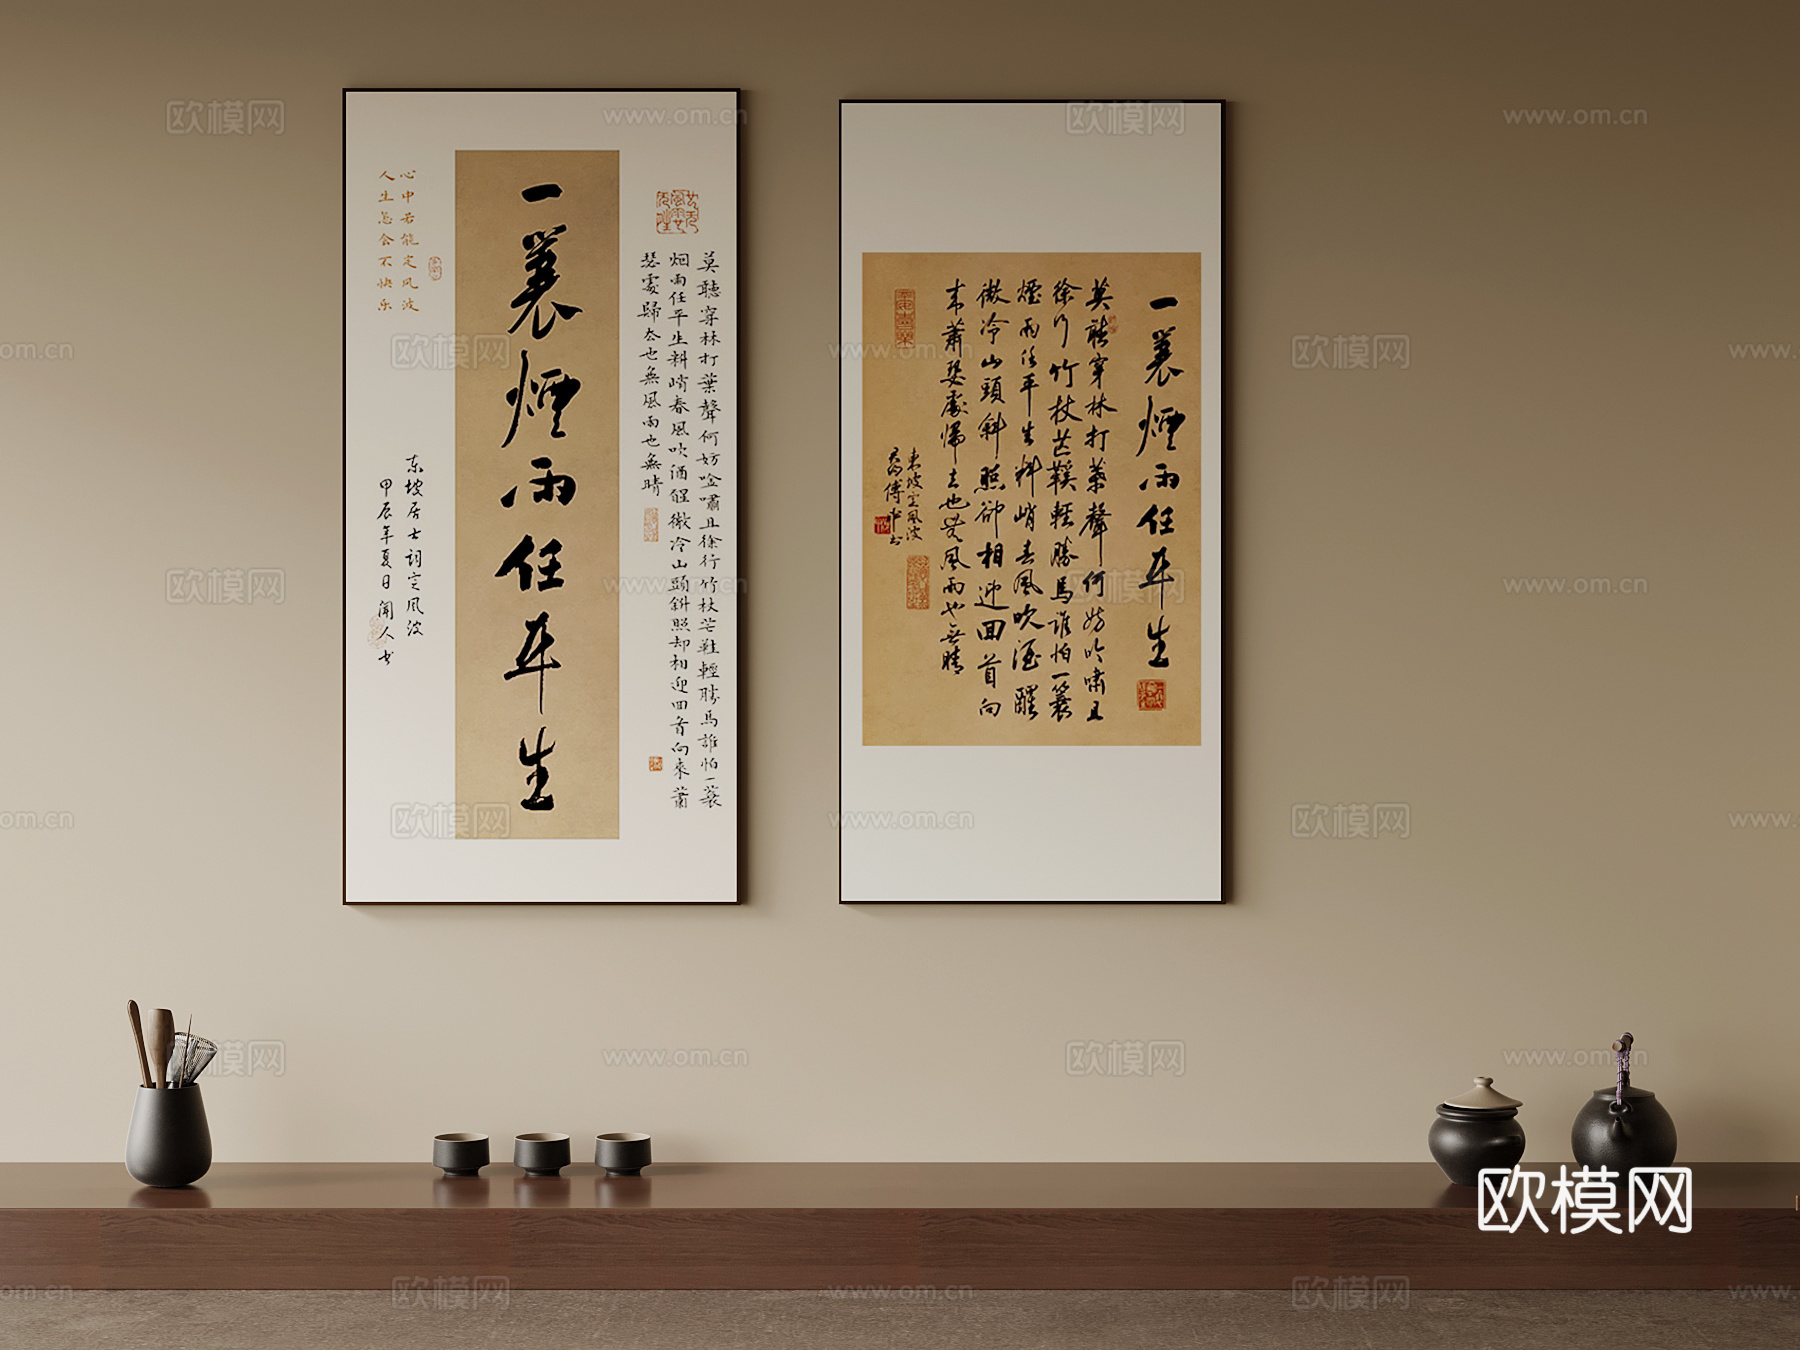 一蓑煙雨任平生
莫聽穿林打葉聲何妨吟嘯且徐行竹杖芒鞋輕勝馬誰怕一蓑
烟雨任平生料峭春風吹酒醒微冷山頭斜照却相迎回首向來蕭
瑟處歸去也無風雨也無晴
心中若能定风波
人生怎会不快乐
东坡居士词定风波
甲辰年夏日闻人书
一蓑煙雨任平生
莫聽穿林打葉聲何妨吟嘯且
徐行竹杖芒鞋輕勝馬誰怕一蓑
煙雨任平生料峭春風吹酒醒
微冷山頭斜照卻相迎回首向
来蕭瑟處归去也無風雨也無晴
東坡定風波
欧模网
www.om.cn